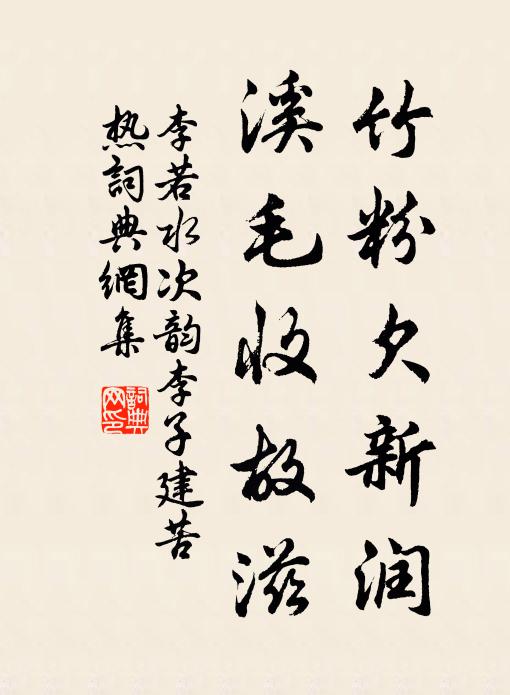 竹粉欠新润
溪毛收故滋
李若水次韵李子建苦
热詞典網集
詞典网印